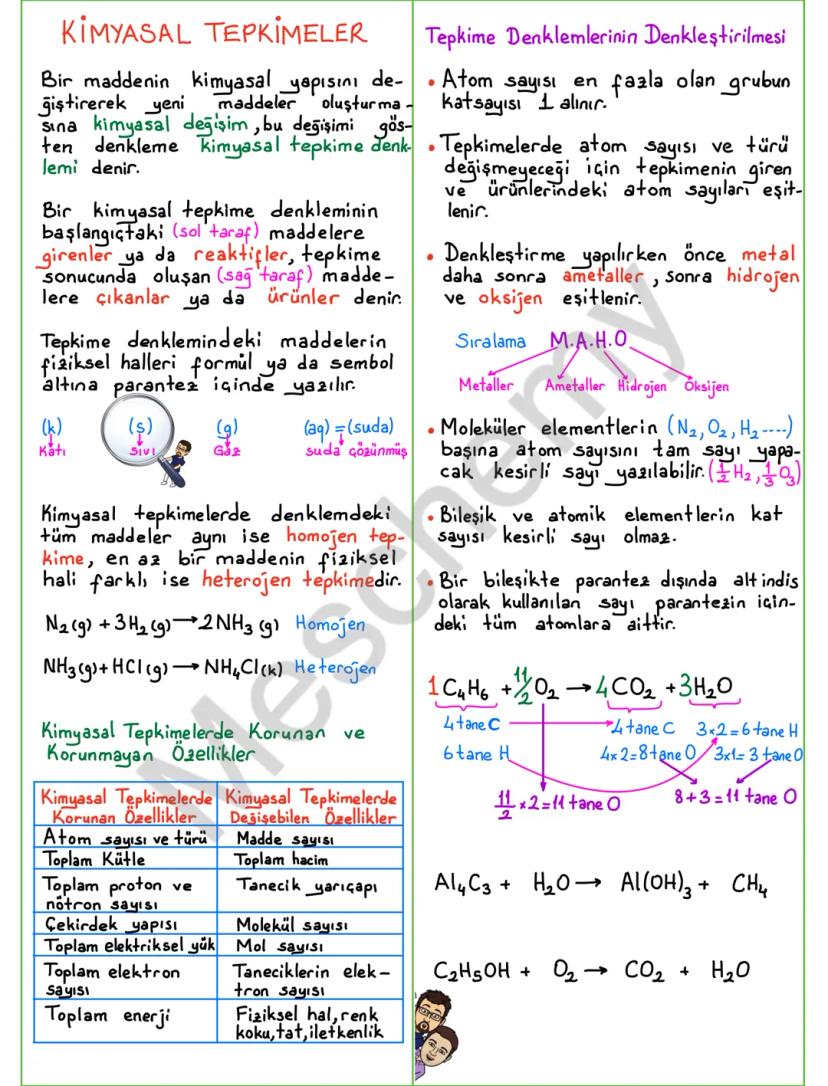 KİMYASAL TEPKİMELER
Bir maddenin kimyasal yapısını de-
ğiştirerek yeni maddeler oluşturma-
sına kimyasal değişim, bu değişimi gös-
ten denkleme kimyasal tepkime denk-
lemi denir.
Bir kimyasal tepkime denkleminin
başlangıçtaki (sol taraf) maddelere
girenler ya da reaktifler, tepkime
sonucunda oluşan (sağ taraf) madde-
lere çıkanlar ya da ürünler denir.
Tepkime denklemindeki maddelerin
fiziksel halleri formül ya da sembol
altına parantez içinde yazılır.
(k) (s) (g) (aq) = (suda)
Katı Sıvı Gaz suda çözünmüş
Kimyasal tepkimelerde denklemdeki
tüm maddeler aynı ise homojen tep-
kime, en az bir maddenin fiziksel
hali farklı ise heterojen tepkimedir.
N₂(g) + 3H₂(g) → 2NH₃(g) Homojen
NH₃(g) + HCl(g) → NH₄Cl(k) Heterojen
Kimyasal Tepkimelerde Korunan ve
Korunmayan Özellikler
Kimyasal Tepkimelerde Kimyasal Tepkimelerde
Korunan Özellikler Değişebilen Özellikler
Atom sayısı ve türü Madde sayısı
Toplam Kütle Toplam hacim
Toplam proton ve Tanecik yarıçapı
nötron sayısı
Çekirdek yapısı Molekül sayısı
Toplam elektriksel yük Mol sayısı
Toplam elektron Taneciklerin elek-
sayısı tron sayısı
Toplam enerji Fiziksel hal, renk
koku, tat, iletkenlik
Tepkime Denklemlerinin Denkleştirilmesi
• Atom sayısı en fazla olan grubun
katsayısı 1 alınır.
• Tepkimelerde atom sayısı ve türü
değişmeyeceği için tepkimenin giren
ve ürünlerindeki atom sayıları eşit-
lenir.
• Denkleştirme yapılırken önce metal
daha sonra ametaller, sonra hidrojen
ve oksijen eşitlenir.
Sıralama M.A.H.O
Metaller Ametaller Hidrojen Oksijen
• Moleküler elementlerin (N₂, O₂, H₂ ----)
başına atom sayısını tam sayı yapa-
cak kesirli sayı yazılabilir. (1/2 H₂, 1/3 O₃)
• Bileşik ve atomik elementlerin kat
sayısı kesirli sayı olmaz.
• Bir bileşikte parantez dışında alt indis
olarak kullanılan sayı parantezin için-
deki tüm atomlara aittir.
1C₄H₆ + 11/2 O₂ → 4CO₂ + 3H₂O
4 tane C 4 tane C 3×2=6 tane H
6 tane H 4×2=8 tane O 3×1=3 tane O
11/2 × 2 = 11 tane O 8+3=11 tane O
Al₄C₃ + H₂O → Al(OH)₃ + CH₄
C₂H₅OH + O₂ → CO₂ + H₂O
Meschemy